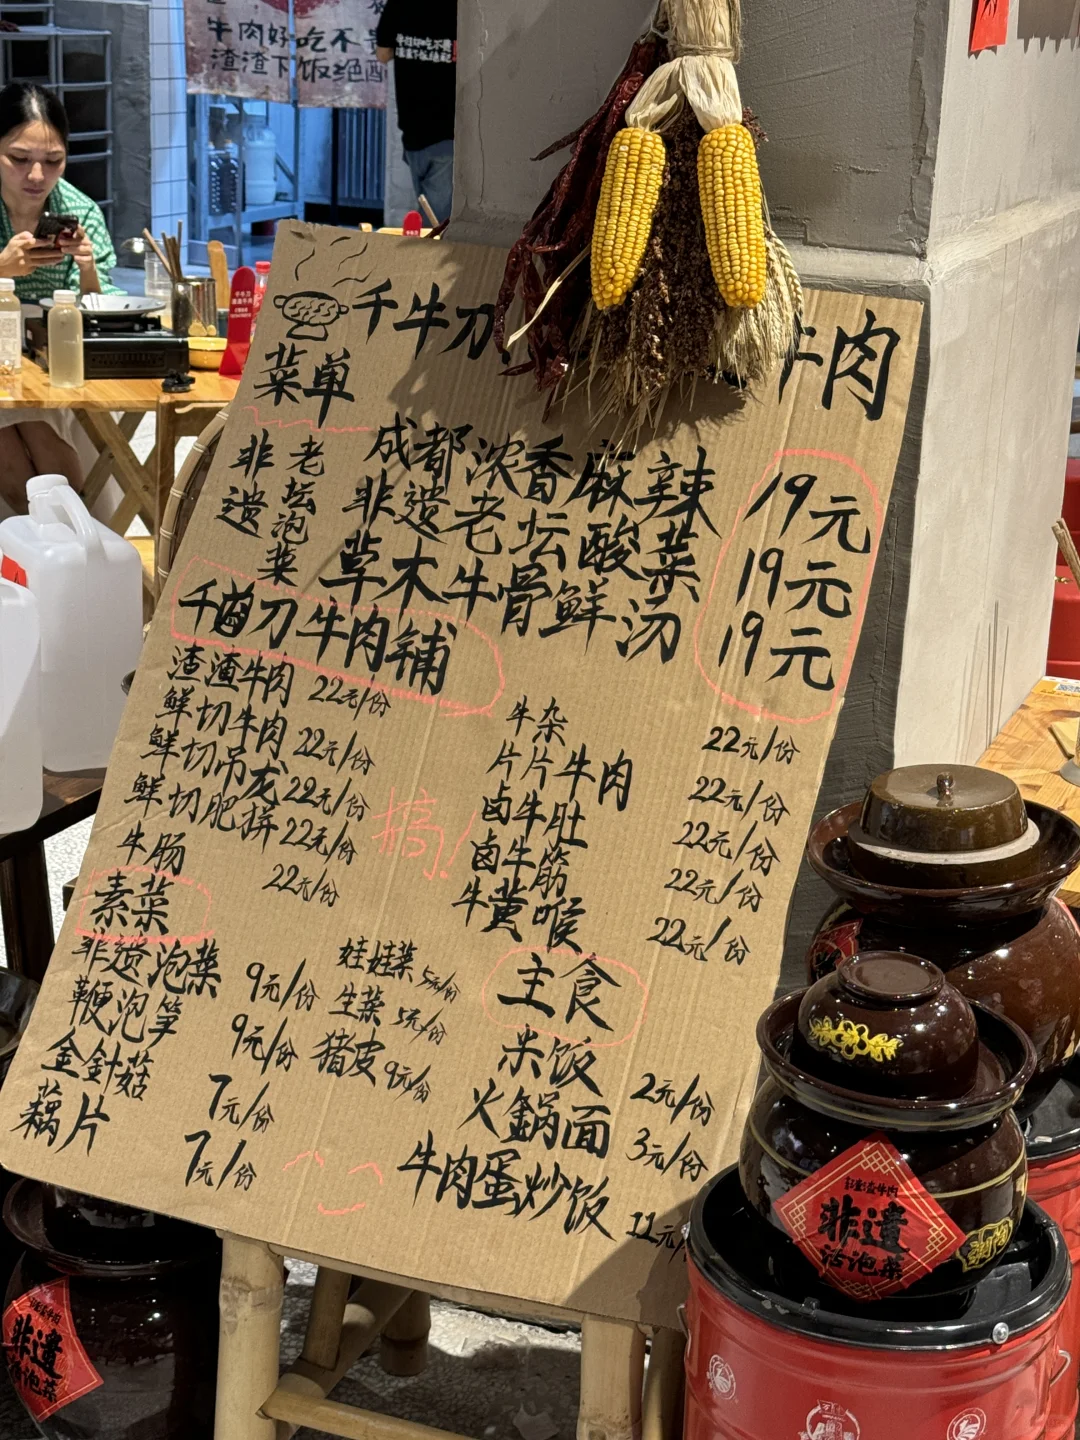 牛肉好吃不贵
渣渣下饭绝配
千牛刀
牛肉
菜单
非遗
老坛泡菜
成都浓香麻辣 19元
非遗老坛酸菜 19元
草木牛骨鲜汤 19元
千卤刀牛肉铺
渣渣牛肉 22元/份
鲜切牛肉 22元/份
鲜切吊龙 22元/份
鲜切肥拼 22元/份
牛肠 22元/份
搞!
牛杂 22元/份
片片牛肉 22元/份
卤牛肚 22元/份
卤牛筋 22元/份
牛黄喉 22元/份
素菜
非遗泡菜 9元/份
鞭泡笋 9元/份
金針菇 7元/份
藕片 7元/份
娃娃菜 5元/份
生菜 5元/份
猪皮 9元/份
主食
米饭 2元/份
火鍋面 3元/份
牛肉蛋炒饭 11元/
非遗
活泡菜
非遗
活泡菜